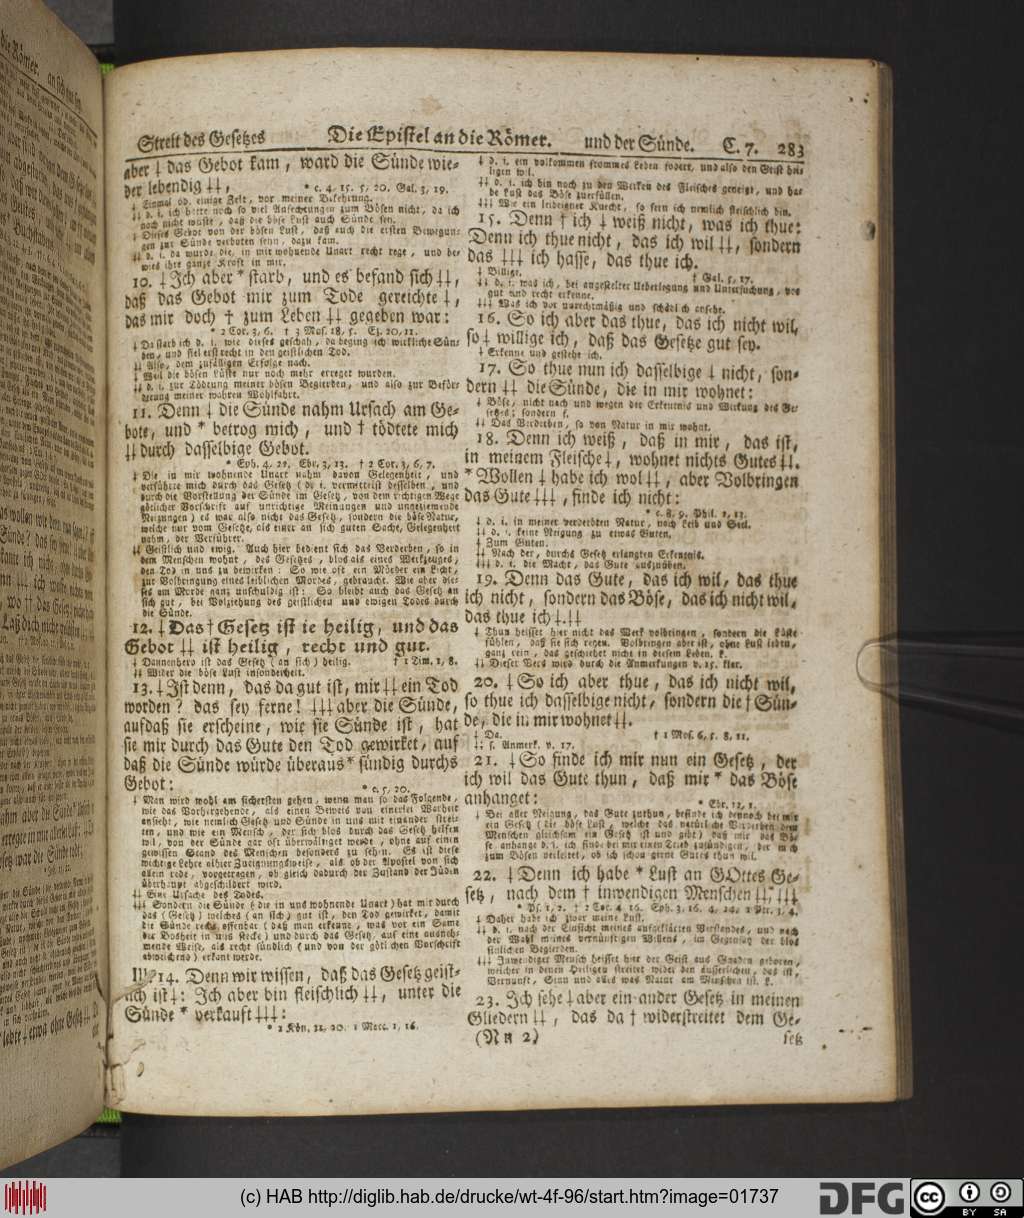 Streit des Gesetzes Die Epistel an die Römer. und der Sünde. C. 7. 283
aber ‡ das Gebot kam, ward die Sünde wie-
der lebendig ‡‡, * c. 4, 15. 5, 20. Gal. 3, 19.
‡ Einmal od. einige Zeit, vor meiner Bekehrung.
‡‡ d. i. ich hatte noch so viel Anfechtungen zum Bösen nicht, da ich
noch nicht wuste, daß die böse Lust auch Sünde sey.
‡ Dieses Gebot von der bösen Lust, daß auch die ersten Bewegun-
gen zur Sünde verboten seyn, dazu kam.
‡‡ d. i. da wurde die, in mir wohnende Unart recht rege, und be-
wies ihre ganze Kraft in mir.
10. ‡ Ich aber * starb, und es befand sich ‡‡,
daß das Gebot mir zum Tode gereichte ‡,
das mir doch † zum Leben ‡‡ gegeben war:
* 2 Cor. 3, 6. † 3 Mos. 18, 5. Ez. 20, 11.
‡ Da starb ich d. i. wie dieses geschah, da beging ich wirkliche Sün-
den, und fiel erst recht in den geistlichen Tod.
‡‡ Also, dem zufälligen Erfolge nach.
‡ Weil die bösen Lüste nur noch mehr erreget wurden.
‡‡ d. i. zur Tödtung meiner bösen Begierden, und also zur Beför-
derung meiner wahren Wohlfahrt.
11. Denn ‡ die Sünde nahm Ursach am Ge-
bote, und * betrog mich, und † tödtete mich
‡‡ durch dasselbige Gebot.
* Eph. 4, 22. Ebr. 3, 13. † 2 Cor. 3, 6. 7.
‡ Die in mir wohnende Unart nahm davon Gelegenheit, und
verführte mich durch das Gesetz (d. i. vermittelst desselben, und
durch die Vorstellung der Sünde im Gesetz, von dem richtigen Wege
götlicher Vorschrift auf unrichtige Meinungen und ungeziemende
Neigungen) es war also nicht das Gesetz, sondern die böse Natur,
welche nur vom Gesetze, als einer an sich guten Sache, Gelegenheit
nahm, der Verführer.
‡‡ Geistlich und ewig. Auch hier bedient sich das Verderben, so in
dem Menschen wohnt, des Gesetzes, blos als eines Werkzeuges,
den Tod in uns zu bewirken: So wie oft ein Mörder ein Licht,
zur Volbringung eines leiblichen Mordes, gebraucht. Wie aber die-
ses am Morde ganz unschuldig ist: So bleibt auch das Gesetz an
sich gut, bei Volziehung des geistlichen und ewigen Todes durch
die Sünde.
12. ‡ Das † Gesetz ist ie heilig, und das
Gebot ‡‡ ist heilig, recht und gut.
‡ Dannenhero ist das Gesetz (an sich) heilig. † 1 Tim. 1, 8.
‡‡ Wider die böse Lust insonderheit.
13. ‡ Ist denn, das da gut ist, mir ‡‡ ein Tod
worden? das sey ferne! ‡‡‡ aber die Sünde,
aufdaß sie erscheine, wie sie Sünde ist, hat
sie mir durch das Gute den Tod gewirket, auf
daß die Sünde würde überaus * sündig durchs
Gebot: * c. 5, 20.
‡ Man wird wohl am sichersten gehen, wenn man so das Folgende,
wie das Vorhergehende, als einen Beweis von einerlei Warheit
ansieht, wie nemlich Gesetz und Sünde in uns mit einander strei-
ten, und wie ein Mensch, der sich blos durch das Gesetz helfen
wil, von der Sünde gar oft überwältiget werde, ohne auf einen
gewissen Stand des Menschen besonders zu sehen. Es ist diese
wichtige Lehre alhier Zueignungsweise, als ob der Apostel von sich
allein rede, vorgetragen, ob gleich dadurch der Zustand der Jüden
überhaupt abgeschildert wird.
‡‡ Eine Ursache des Todes.
‡‡‡ Sondern die Sünde (die in uns wohnende Unart) hat mir durch
das (Gesetz) welches (an sich) gut ist, den Tod gewirket, damit
die Sünde recht offenbar (daß man erkenne, was vor ein Same
der Bosheit in uns stecke) und durch das Gesetz, auf eine ausneh-
mende Weise, als recht sündlich (und von der götlichen Vorschrift
abweichend) erkant werde.
III) 14. Denn wir wissen, daß das Gesetz geist-
lich ist ‡: Ich aber bin fleischlich ‡‡, unter die
Sünde * verkauft ‡‡‡:
* 1 Kön. 21, 20. 1 Macc. 1, 16.
‡ d. i. ein volkommen frommes Leben fodert, und also den Geist hei-
ligen wil.
‡‡ d. i. ich bin noch zu den Werken des Fleisches geneigt, und ha-
be Lust das Böse zuerfüllen.
‡‡‡ Wie ein leibeigner Knecht, so fern ich nemlich fleischlich bin.
15. Denn † ich ‡ weiß nicht, was ich thue:
Denn ich thue nicht, das ich wil ‡‡, sondern
das ‡‡‡ ich hasse, das thue ich.
‡ Billige. † Gal. 5, 17.
‡‡ d. i. was ich, bei angestelter Ueberlegung und Untersuchung, vor
gut und recht erkenne.
‡‡‡ Was ich vor unrechtmäßig und schädlich ansehe.
16. So ich aber das thue, das ich nicht wil,
so ‡ willige ich, daß das Gesetze gut sey.
‡ Erkenne und gestehe ich.
17. So thue nun ich dasselbige ‡ nicht, son-
dern ‡‡ die Sünde, die in mir wohnet:
‡ Böse, nicht nach und wegen der Erkentnis und Wirkung des Ge-
setzes; sondern f.
‡‡ Das Verderben, so von Natur in mir wohnt.
18. Denn ich weiß, daß in mir, das ist,
in meinem Fleische ‡, wohnet nichts Gutes ‡‡.
* Wollen ‡ habe ich wol ‡‡, aber Volbringen
das Gute ‡‡‡, finde ich nicht:
* c. 8, 9. Phil. 2, 13.
‡ d. i. in meiner verderbten Natur, nach Leib und Seel.
‡‡ d. i. keine Neigung zu etwas Guten.
‡ Zum Guten.
‡‡ Nach der, durchs Gesetz erlangten Erkentnis.
‡‡‡ d. i. die Macht, das Gute auszuüben.
19. Denn das Gute, das ich wil, das thue
ich nicht, sondern das Böse, das ich nicht wil,
das thue ich ‡. ‡‡
‡ Thun heisset hier nicht das Werk volbringen, sondern die Lüste
fühlen, daß sie sich regen. Volbringen aber ist, ohne Lust leben,
ganz rein, das geschiehet nicht in diesem Leben. L.
‡‡ Dieser Vers wird durch die Anmerkungen v. 15. klar.
20. ‡ So ich aber thue, das ich nicht wil,
so thue ich dasselbige nicht, sondern die † Sün-
de, die in mir wohnet ‡‡.
‡ Da. † 1 Mos. 6, 5. 8, 21.
‡‡ s. Anmerk. v. 17.
21. ‡ So finde ich mir nun ein Gesetz, der
ich wil das Gute thun, daß mir * das Böse
anhanget: * Ebr. 12, 1.
‡ Bei aller Neigung, das Gute zuthun, befinde ich dennoch bei mir
ein Gesetz (die böse Lust, welche das natürliche Verderben dem
Menschen gleichsam ein Gesetz ist und gibt) daß mir das Bö-
se anhange d. i. ich finde bei mir einen Trieb zusündigen, der mich
zum Bösen verleitet, ob ich schon gerne Gutes thun wil.
22. ‡ Denn ich habe * Lust an GOttes Ge-
setz, nach dem † inwendigen Menschen ‡‡, ‡‡‡
* Ps. 1, 2. † 2 Cor. 4, 16. Eph. 3, 16. 4, 24. 1 Petr. 3, 4.
‡ Daher habe ich zwar meine Lust.
‡‡ d. i. nach der Einsicht meines aufgeklärten Verstandes, und nach
der Wahl meines vernünftigen Willens, im Gegensatz der blos
sinlichen Begierden.
‡‡‡ Inwendiger Mensch heisset hier der Geist aus Gnaden geboren,
welcher in denen Heiligen streitet wider den äusserlichen, das ist,
Vernunft, Sinn und alles was Natur am Menschen ist. L.
23. Ich sehe ‡ aber ein ander Gesetz in meinen
Gliedern ‡‡, das da † widerstreitet dem Ge-
(Nn 2) setz
(c) HAB http://diglib.hab.de/drucke/wt-4f-96/start.htm?image=01737
DFG
cc BY SA